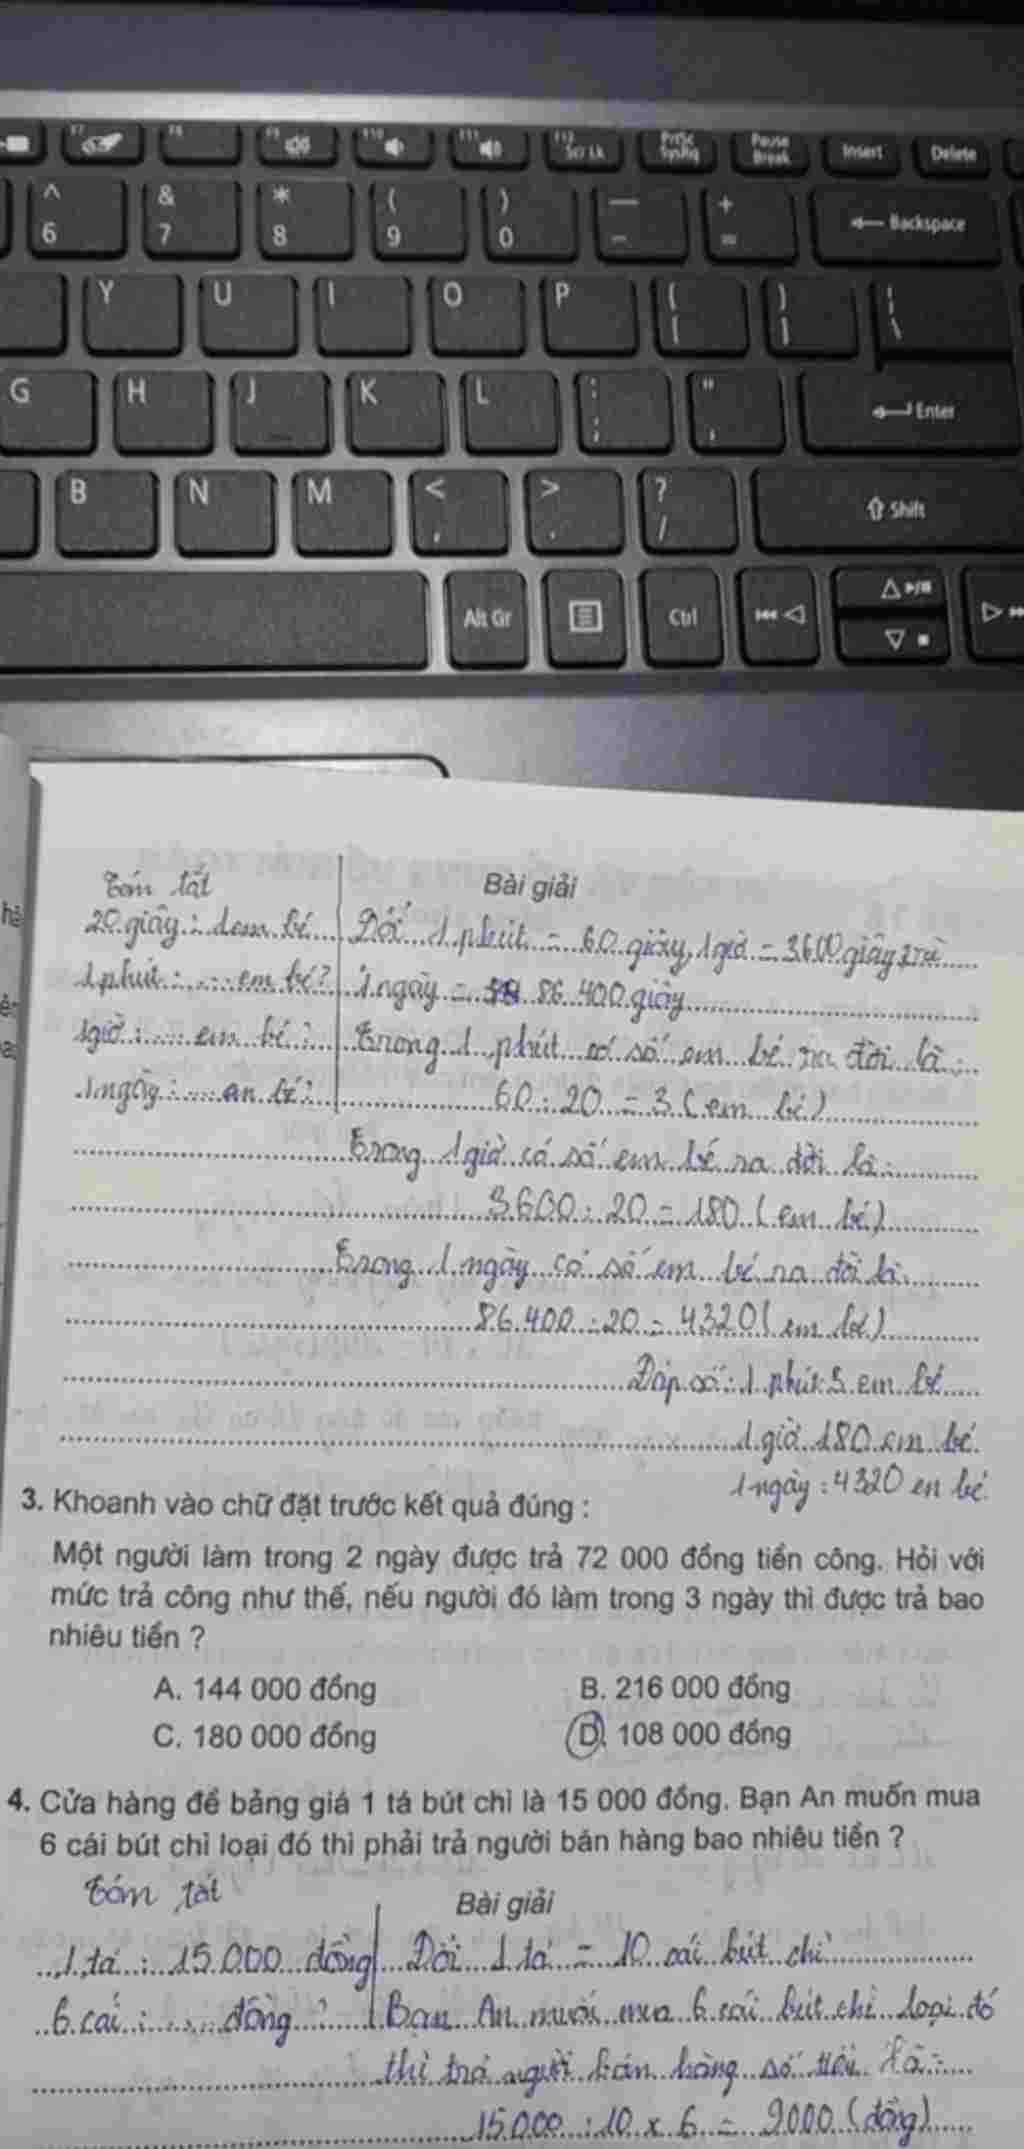 F7 F8 F9 F10 F11 F12 Scr Lk PrtSc SysRq Pause Break Insert Delete
^ 6 & 7 * 8 ( 9 ) 0 — - + = Backspace
Y U I O P { [ } ] | \
G H J K L : ; " ' Enter
B N M < , > . ? / Shift
Alt Gr Ctrl
Tóm tắt
Bài giải
20 giây : 1 em bé
Đổi 1 phút = 60 giây, 1 giờ = 3600 giây
1 phút : .... em bé?
1 ngày = 86 400 giây
1giờ : ..... em bé ?
Trong 1 phút có số em bé ra đời là :
1ngày : .... em bé ?
60 : 20 = 3 (em bé)
Trong 1 giờ có số em bé ra đời là :
3600 : 20 = 180 (em bé)
Trong 1 ngày có số em bé ra đời là :
86 400 : 20 = 4320 (em bé)
Đáp số : 1 phút 3 em bé
1 giờ 180 em bé
1 ngày : 4320 em bé
3. Khoanh vào chữ đặt trước kết quả đúng :
Một người làm trong 2 ngày được trả 72 000 đồng tiền công. Hỏi với
mức trả công như thế, nếu người đó làm trong 3 ngày thì được trả bao
nhiêu tiền ?
A. 144 000 đồng B. 216 000 đồng
C. 180 000 đồng D. 108 000 đồng
4. Cửa hàng để bảng giá 1 tá bút chì là 15 000 đồng. Bạn An muốn mua
6 cái bút chì loại đó thì phải trả người bán hàng bao nhiêu tiền ?
Tóm tắt
Bài giải
1 tá : 15 000 đồng
Đổi 1 tá = 10 cái bút chì
6 cái : ..... đồng ?
Bạn An muốn mua 6 cái bút chì loại đó
thì trả người bán hàng số tiền là :
15 000 : 10 x 6 = 9000 (đồng)